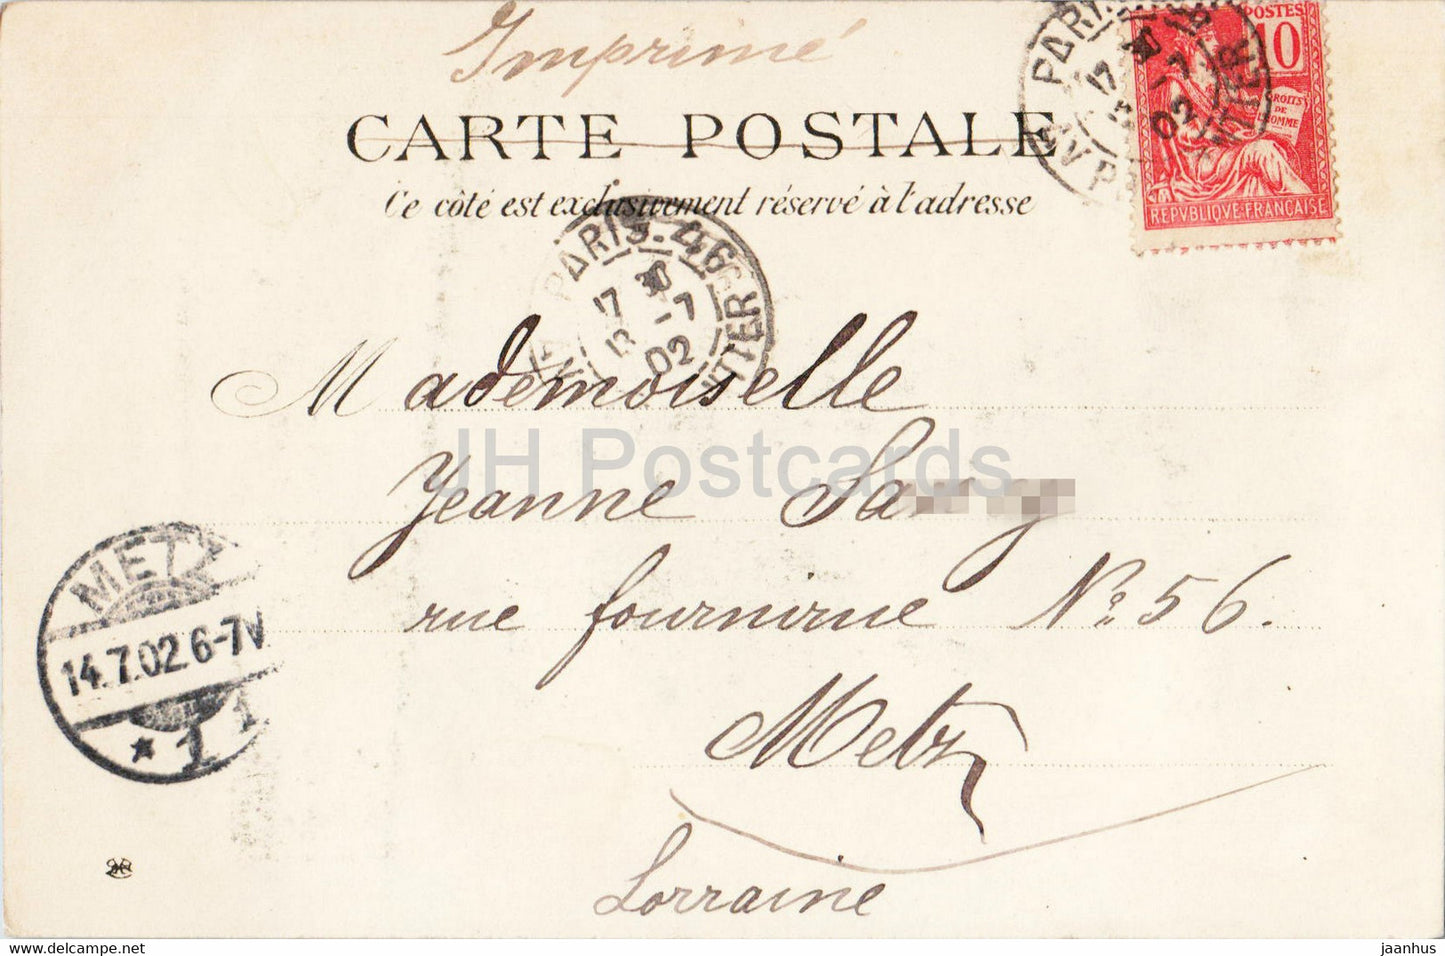 Imprimé
CARTE POSTALE
Ce côté est exclusivement réservé à l'adresse
POSTES
10
DROITS
DE
L'HOMME
REPVBLIQVE FRANÇAISE
PARIS
17 30
13 -7
02
PARIS-46
17 30
13 -7
02
Mademoiselle
Jeanne
rue fournirue No 56.
Metz
Lorraine
METZ
14.7.02.6-7V
* 1
JH Postcards
delcampe.net
jaanhus